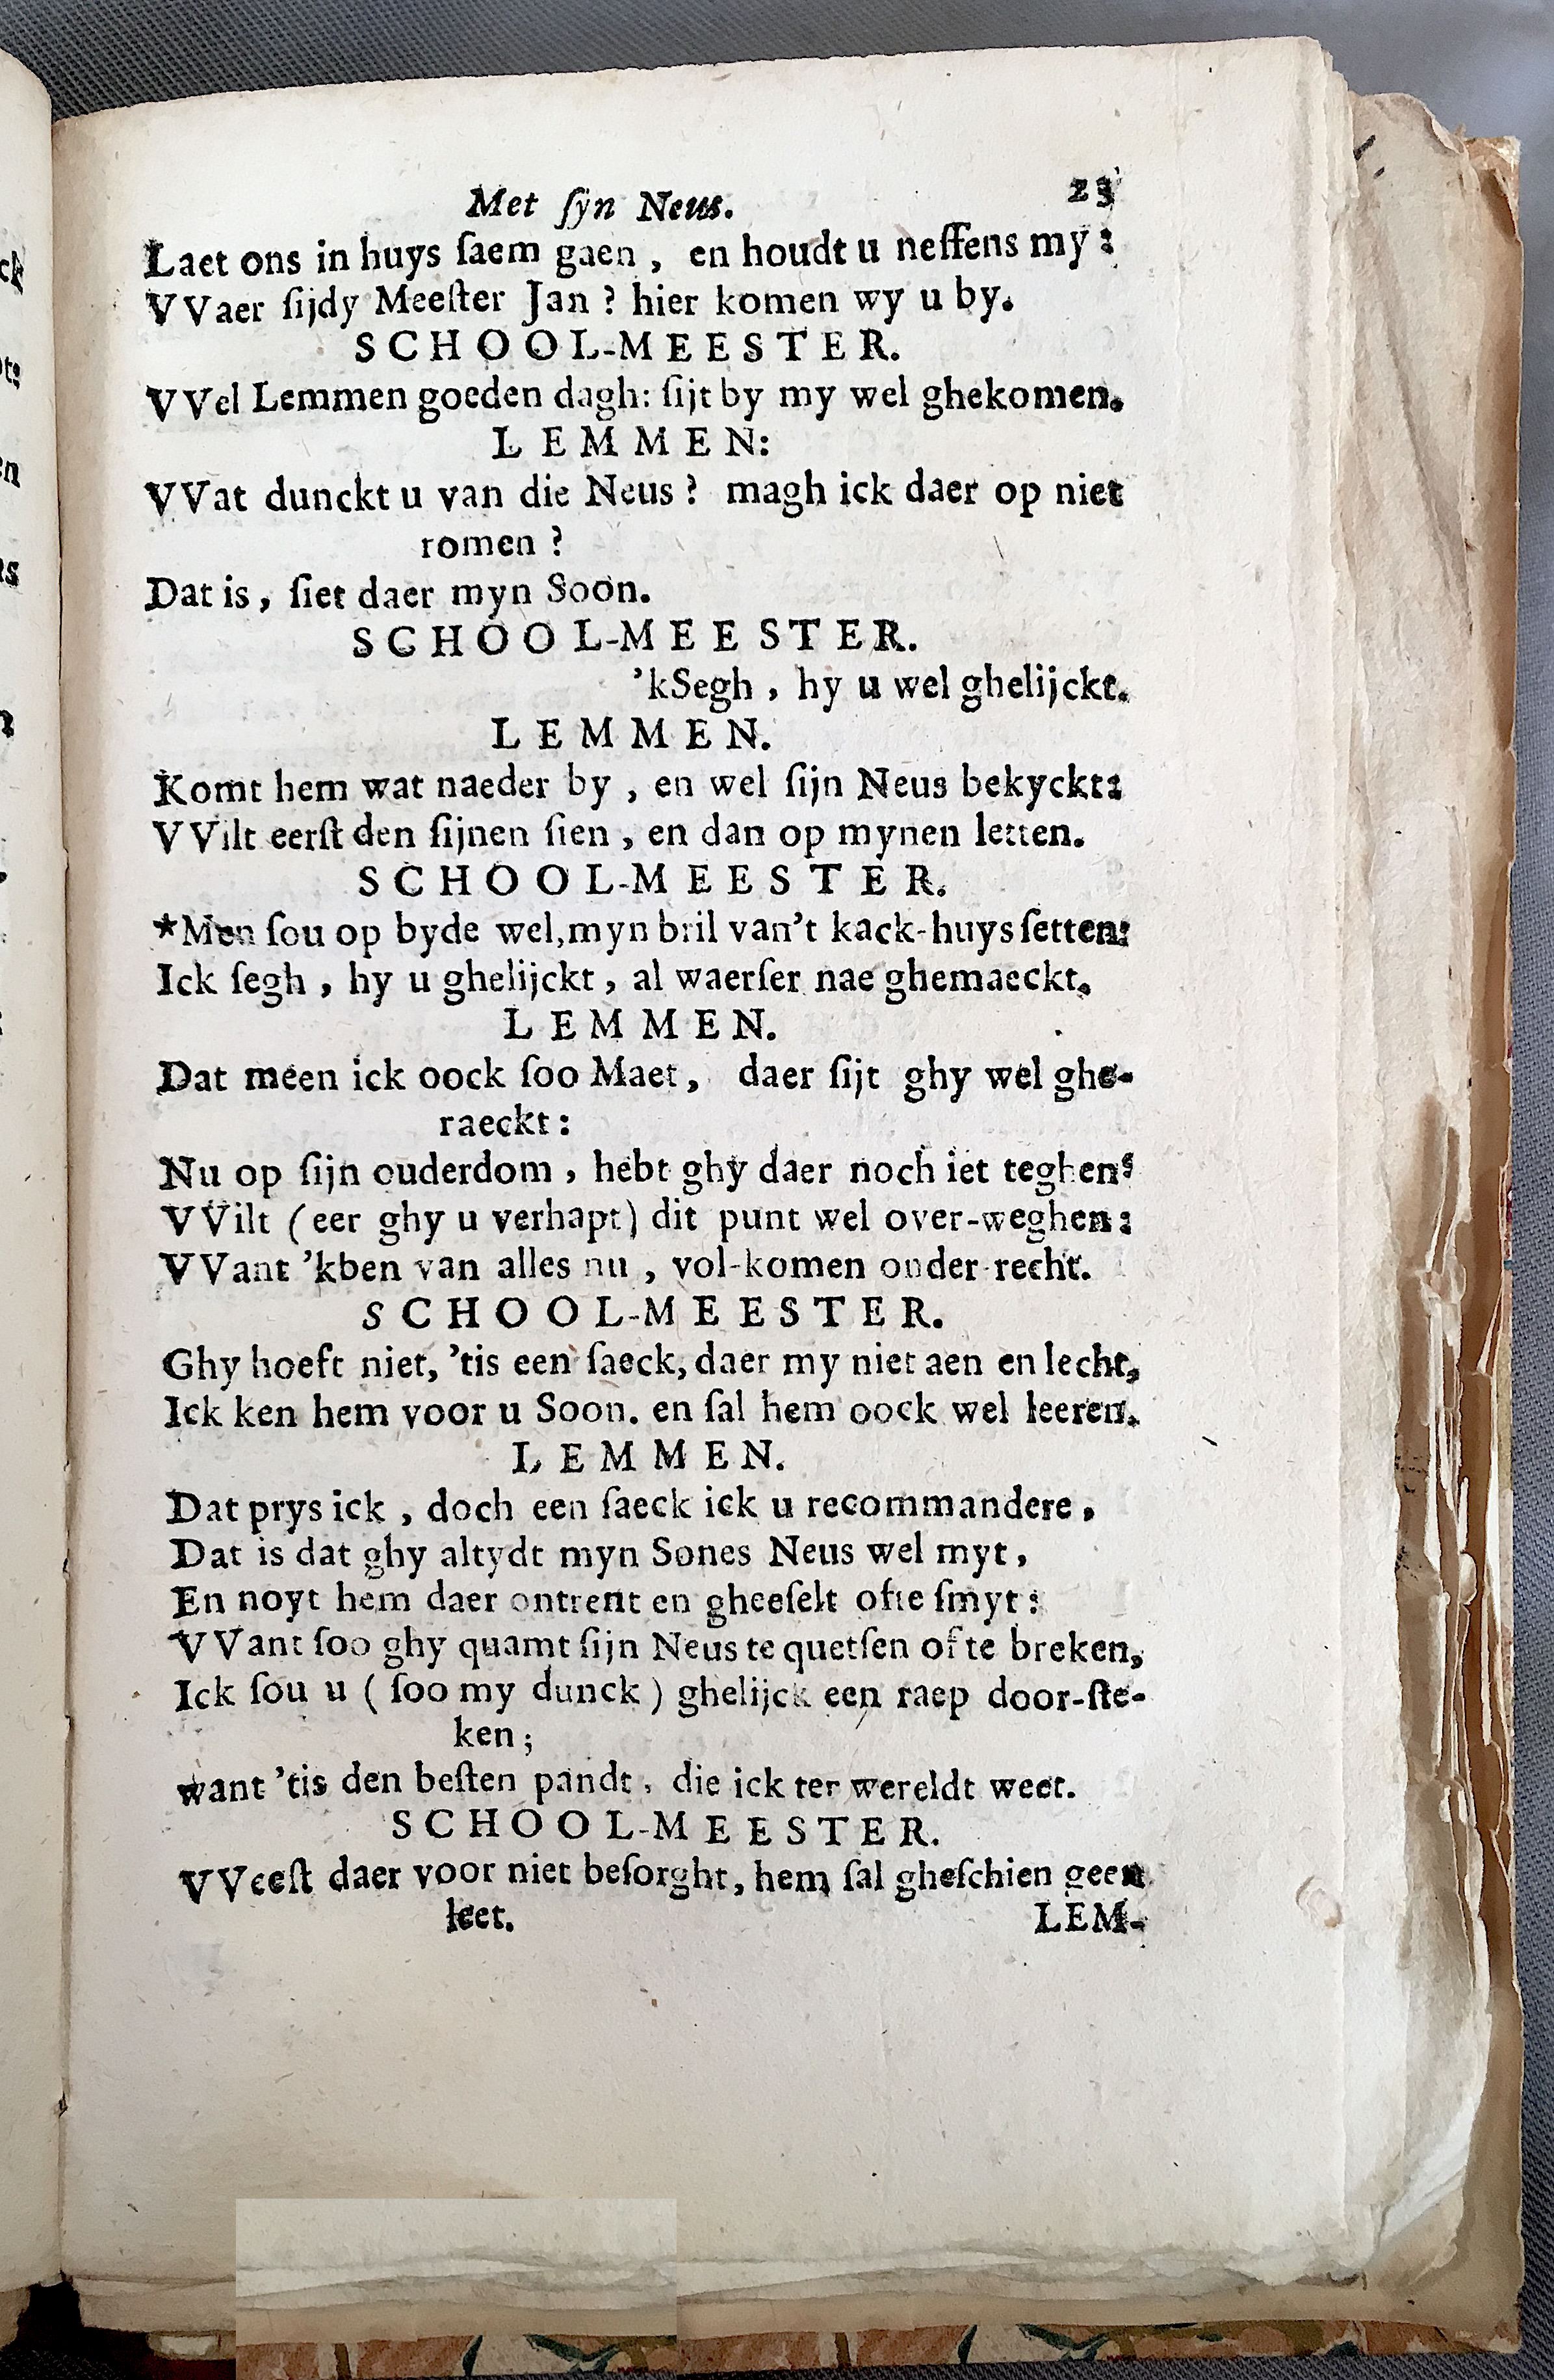 Met ſyn Neus. 23
Laet ons in huys ſaem gaen , en houdt u neffens my :
VVaer ſijdy Meeſter Jan ? hier komen wy u by.
SCHOOL-MEESTER.
VVel Lemmen goeden dagh: ſijt by my wel ghekomen.
LEMMEN:
VVat dunckt u van die Neus ? magh ick daer op niet
romen ?
Dat is , ſiet daer myn Soon.
SCHOOL-MEESTER.
'kSegh , hy u wel ghelijckt.
LEMMEN.
Komt hem wat naeder by , en wel ſijn Neus bekyckt:
VVilt eerſt den ſijnen ſien , en dan op mynen letten.
SCHOOL-MEESTER.
*Men ſou op byde wel,myn bril van't kack-huys ſetten:
Ick ſegh , hy u ghelijckt , al waerſer nae ghemaeckt.
LEMMEN.
Dat meen ick oock ſoo Maet , daer ſijt ghy wel ghe-
raeckt :
Nu op ſijn ouderdom , hebt ghy daer noch iet teghen?
VVilt (eer ghy u verhapt) dit punt wel over-weghen:
VVant 'kben van alles nu , vol-komen onder-recht.
SCHOOL-MEESTER.
Ghy hoeft niet, 'tis een ſaeck, daer my niet aen en lecht,
Ick ken hem voor u Soon. en ſal hem oock wel leeren.
LEMMEN.
Dat prys ick , doch een ſaeck ick u recommandere ,
Dat is dat ghy altydt myn Sones Neus wel myt ,
En noyt hem daer ontrent en gheeſelt ofte ſmyt :
VVant ſoo ghy quamt ſijn Neus te quetſen ofte breken,
Ick ſou u ( ſoo my dunck ) ghelijck een raep door-ſte-
ken ;
want 'tis den beſten pandt , die ick ter wereldt weet.
SCHOOL-MEESTER.
VVeeſt daer voor niet beſorght, hem ſal gheſchien geen
leet. LEM-